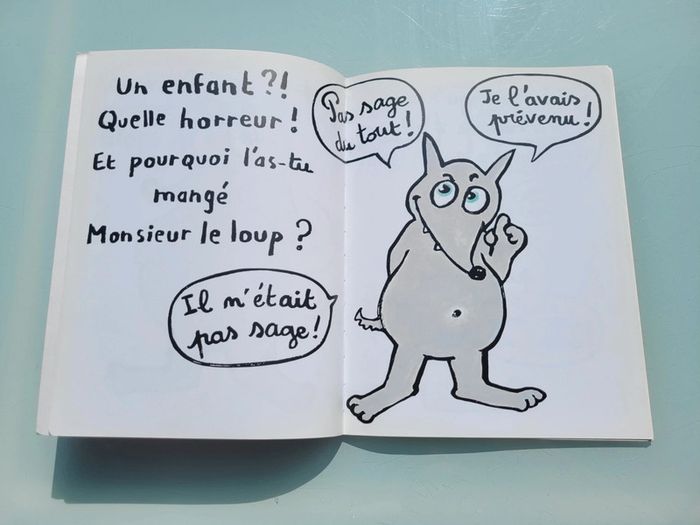 Un enfant?!
Quelle horreur!
Et pourquoi l'as-tu
mangé
Monsieur le loup?
Il n'était
pas sage!
Pas sage
du tout!
Je l'avais
prévenu!